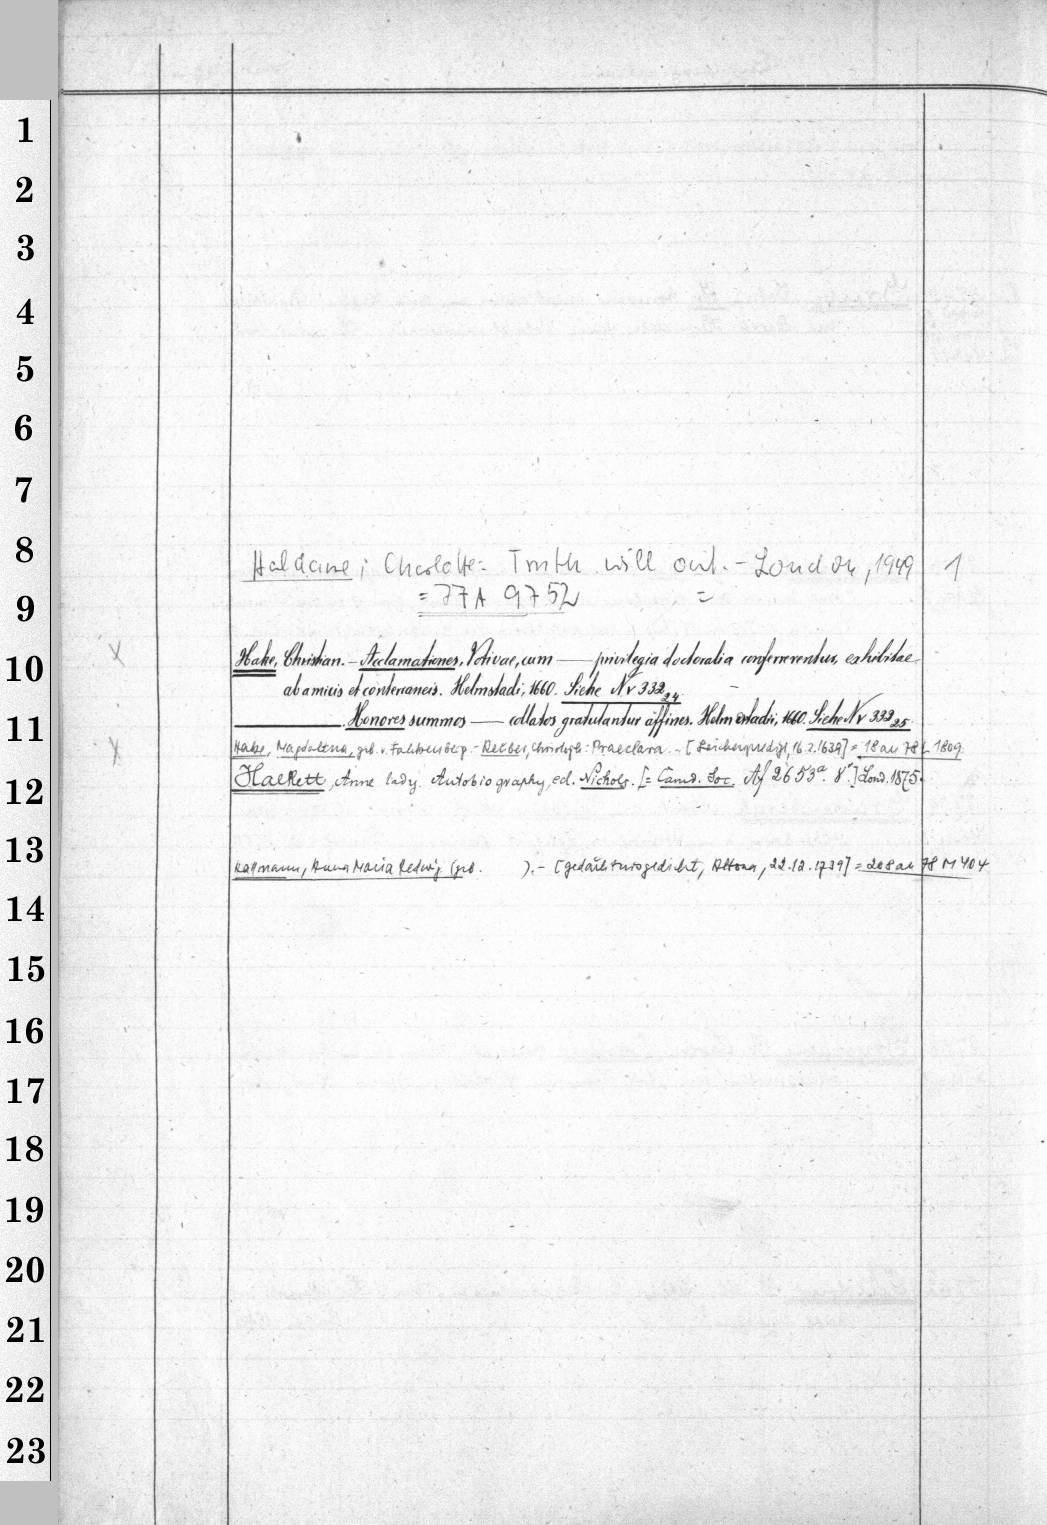 1
2
3
4
5
6
7
8
9
10
11
12
13
14
15
16
17
18
19
20
21
22
23
Haldane, Charlotte: Truth will out. - London, 1949 1
= 77 A 9752 =
X Hake, Christian. - Acclamationes, Votivae, cum — privilegia doctoralia conferrerentur, exhibitae
ab amicis et conterraneis. Helmstadi, 1660. Siehe Nr 332 24
— . Honores summos — collatos gratulantur affines. Helmstadi, 1660. Siehe Nr 332 25
X Hake, Magdalena, geb. v. Falkenberg. - Reuber, Christoph: Praeclara. - [Leichenpredigt, 16.2.1639] = 18 an 78 L 1809
Halkett, Anne lady. Autobiography, ed. Nichols. [= Camd. Soc. Af 2653ª. 8°.] Lond. 1875.
Hallmann, Anna Maria Hedwig (geb. ). - [Gedächtnisgedicht, Altona, 22.12.1739] = 208 an 78 M 404